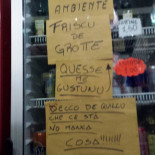 AMBIENTE
FRISCU
DE
GROTTE
QUESSE
ME
GUSTUNU
BECCO DE QUILLU
CHE CE STA
NO MANCA
COSA!!!!!!!